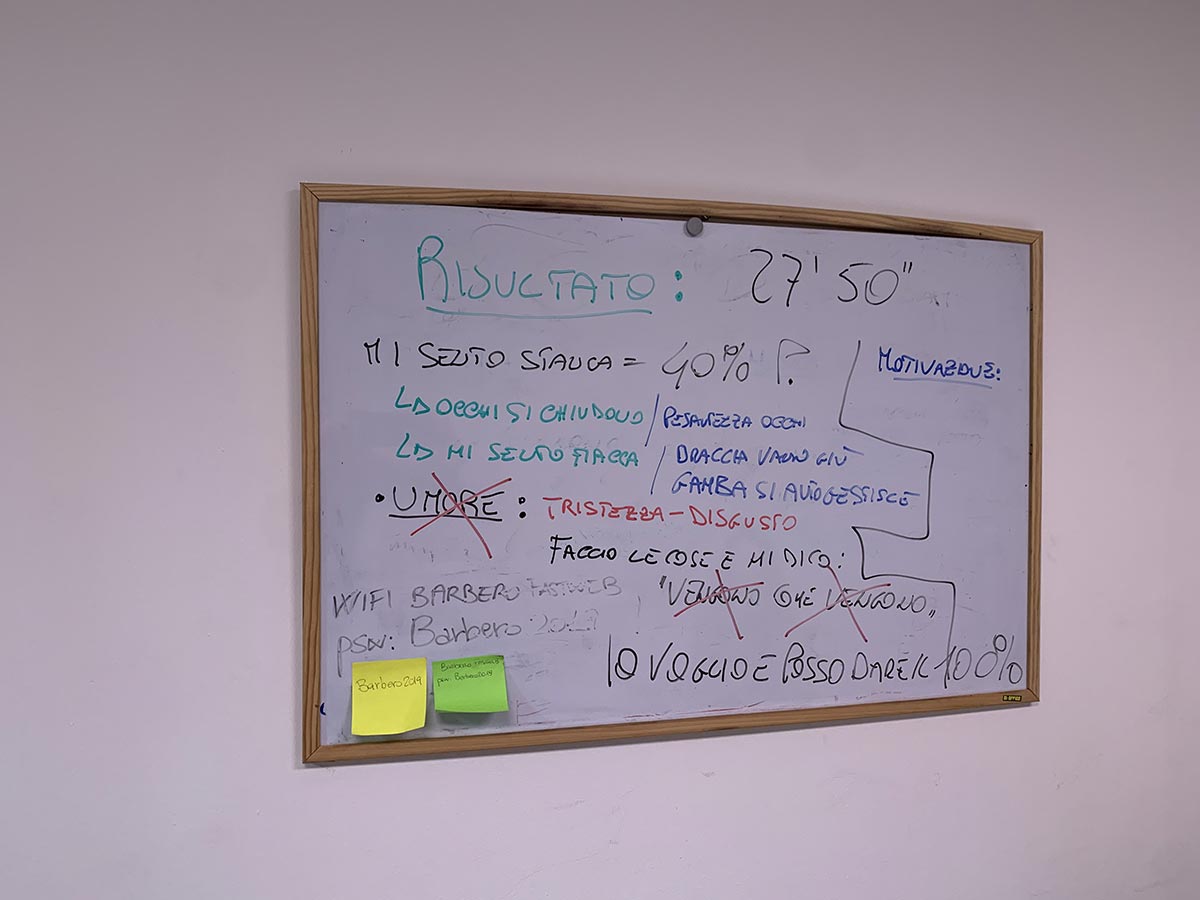 RISULTATO: 27' 50"
MI SENTO STANCA = 40% P.
↳ OCCHI SI CHIUDONO / PESANTEZZA OCCHI
↳ MI SENTO FIACCA / BRACCIA VANNO GIÙ
GAMBA SI AUTOGESTISCE
MOTIVAZIONE:
• UMORE: TRISTEZZA - DISGUSTO
FACCIO LE COSE E MI DICO:
"VENGONO CHE VENGONO"
IO VOGLIO E POSSO DARE IL 100%
WIFI BARBERO FASTWEB
psw: Barbero 2019
Barbero2019
Barbero
psw: Barbero2019